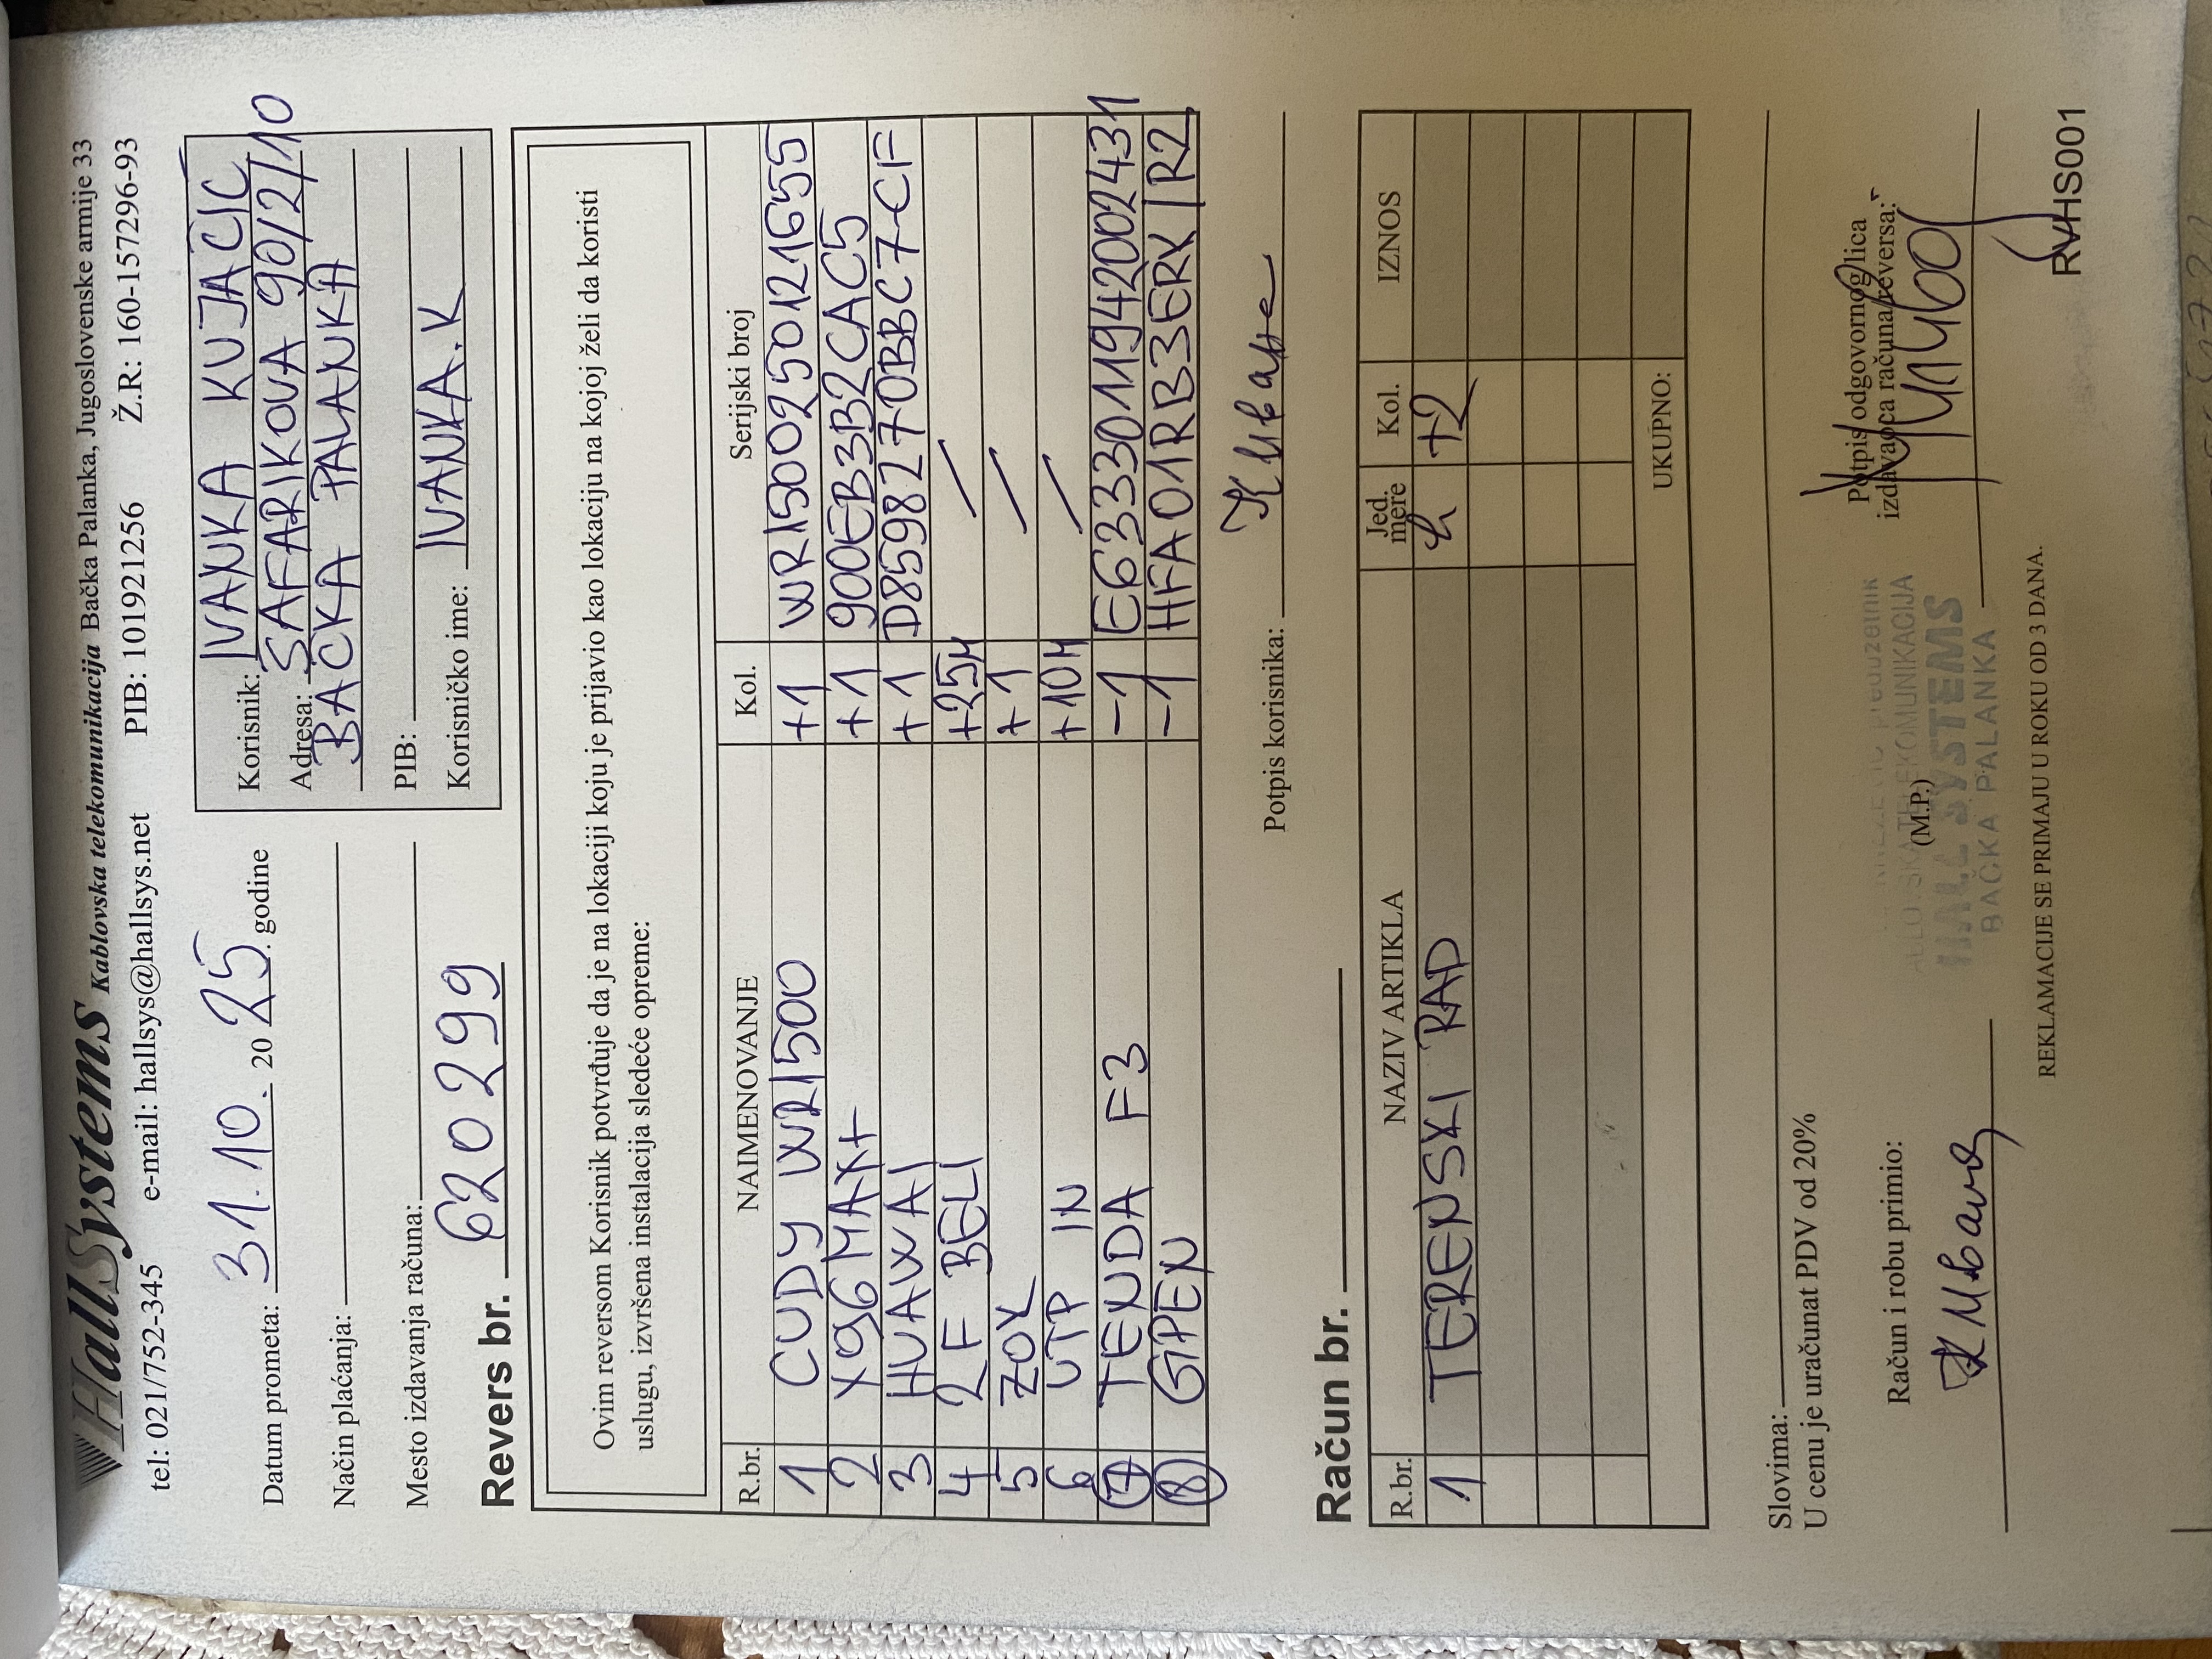 HallSystems Kablovska telekomunikacija Bačka Palanka, Jugoslovenske armije 33
tel: 021/752-345 e-mail: hallsys@hallsys.net PIB: 101921256 Ž.R: 160-157296-93
Datum prometa: 31.10. 2025. godine
Način plaćanja:
Mesto izdavanja računa:
Revers br. 620299
Korisnik: IVANKA KUJAČIĆ
Adresa: ŠAFARIKOVA 90/2/10
BAČKA PALANKA
PIB:
Korisničko ime: IVANKA.K
Ovim reversom Korisnik potvrđuje da je na lokaciji koju je prijavio kao lokaciju na kojoj želi da koristi
uslugu, izvršena instalacija sledeće opreme:
R.br. NAIMENOVANJE Kol. Serijski broj
1 CUDY WR1500 +1 WR15002501121655
2 X96MAX+ +1 900EB3B2CAC5
3 HUAWAI +1 D8598270BBC7CF
4 2F BELI +25M /
5 ZOK +1 /
6 UTP IN +10M /
7 TENDA F3 -1 E6333011942002431
8 GPEN -1 HFA01RB3ERX1R2
Potpis korisnika: К Иване
Račun br.
R.br. NAZIV ARTIKLA Jed. mere Kol. IZNOS
1 TERENSKI RAD h +2
UKUPNO:
Slovima:
U cenu je uračunat PDV od 20%
Račun i robu primio:
(M.P.)
Potpis odgovornog lica
izdavaoca računa/reversa:
TELEKOMUNIKACIJA
HALL SYSTEMS
BAČKA PALANKA
REKLAMACIJE SE PRIMAJU U ROKU OD 3 DANA.
RVHS001